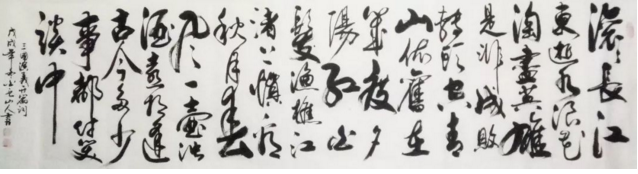 滚〻長江
東逝水浪花
淘盡英雄
是非成敗
轉頭空青
山依舊在
幾度夕
陽紅白
髮漁樵江
渚上慣看
秋月春
风一壺濁
酒喜相逢
古今多少
事都付笑
談中
三國演義開篇詞
戊戌年山人書